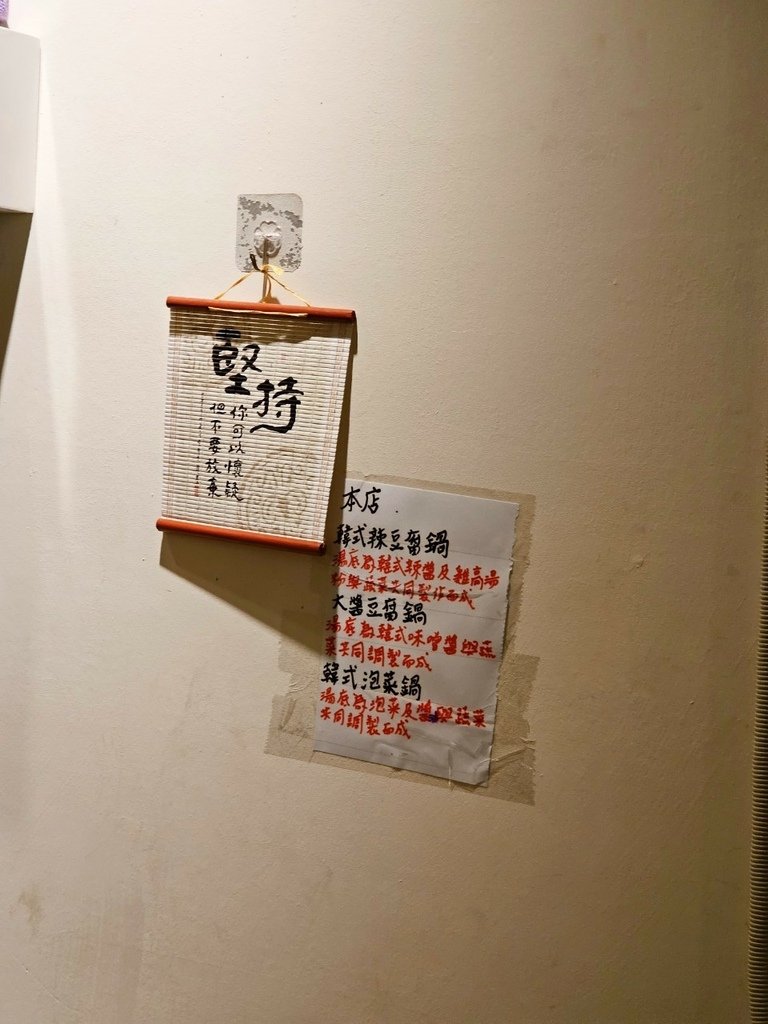 堅持
你可以懷疑
但不要放棄
本店.
韓式辣豆腐鍋
湯底為韓式辣醬及雞高湯
粉與蔬菜共同製作而成
大醬豆腐鍋
湯底為韓式味噌醬與蔬
菜共同調製而成
韓式泡菜鍋
湯底為泡菜及醬與蔬菜
共同調製而成